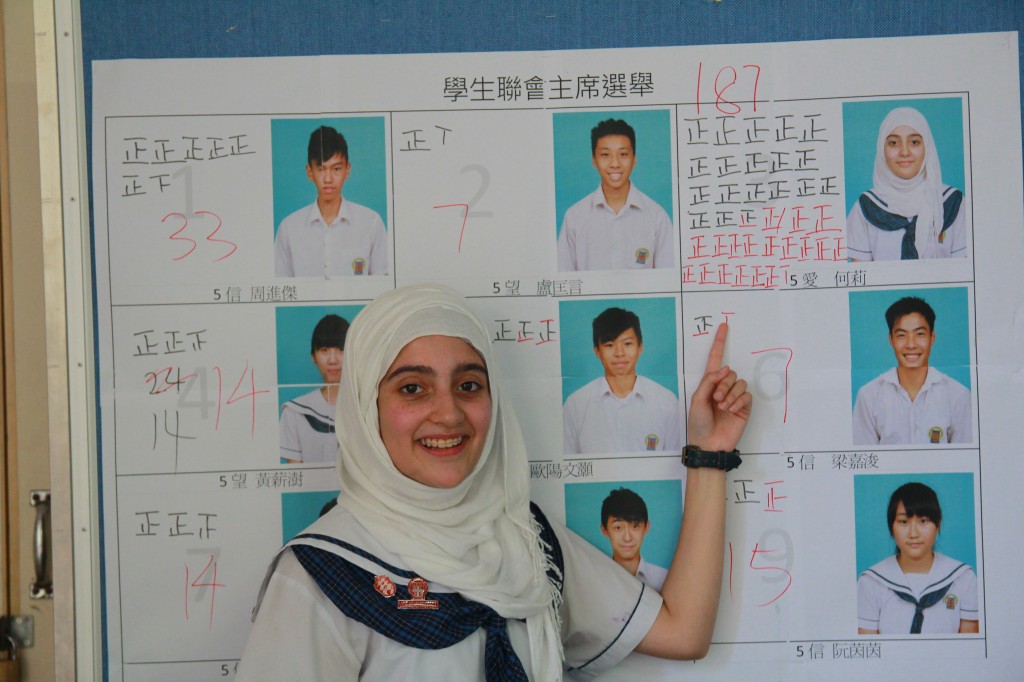 學生聯會主席選舉
187
正正正正正
正下
1
33
5信 周進傑
正丅
2
7
5望 盧匡言
正正正正正
正正正正正
正正正正正正
正正正正正正
5愛 何莉
正正下
24
4
14
14
5望 黃薪澍
正正正
歐陽文灝
正丅
6
7
5信 梁嘉浚
正正
7
14
5
正正
9
15
5信 阮茵茵